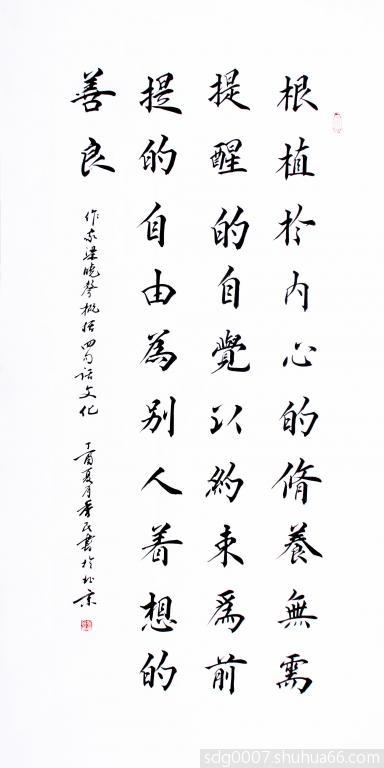 根植於内心的脩養無需
提醒的自覺以約束為前
提的自由為别人着想的
善良
作家梁晓聲概括四句话文化
丁酉夏月民書於北京
sdg0007.shuhua66.com